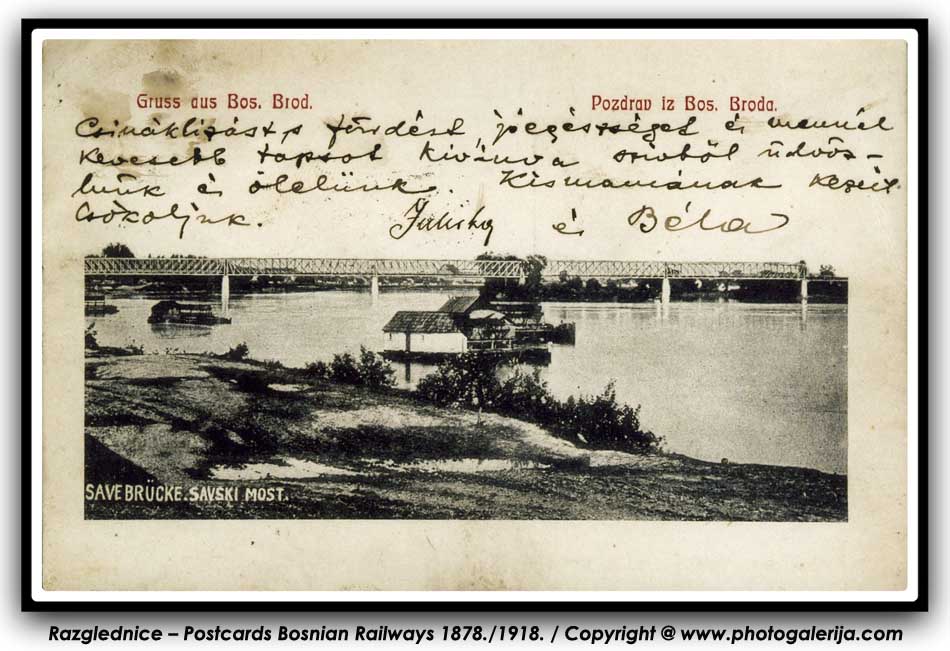 Gruss aus Bos. Brod.
Pozdrav iz Bos. Broda.
fürdést, jó egészséget és mennél
kevesebb kívánva szivből üdvöz-
lünk és ölelünk. Kismamának kezeit
csókoljuk. és Béla
SAVEBRÜCKE. SAVSKI MOST.
Razglednice – Postcards Bosnian Railways 1878./1918. / Copyright @ www.photogalerija.com